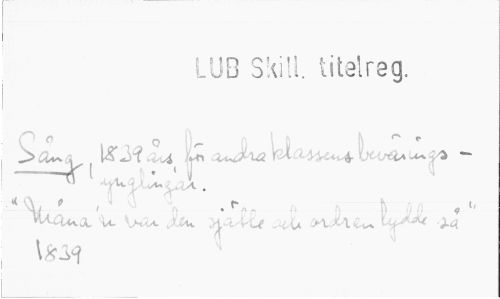 LUB Skill. titelreg.
Sång, 1839 års, för andra klassens bevärings-
ynglingar.
"Måna'n var den sjätte och ordren lydde så"
1839